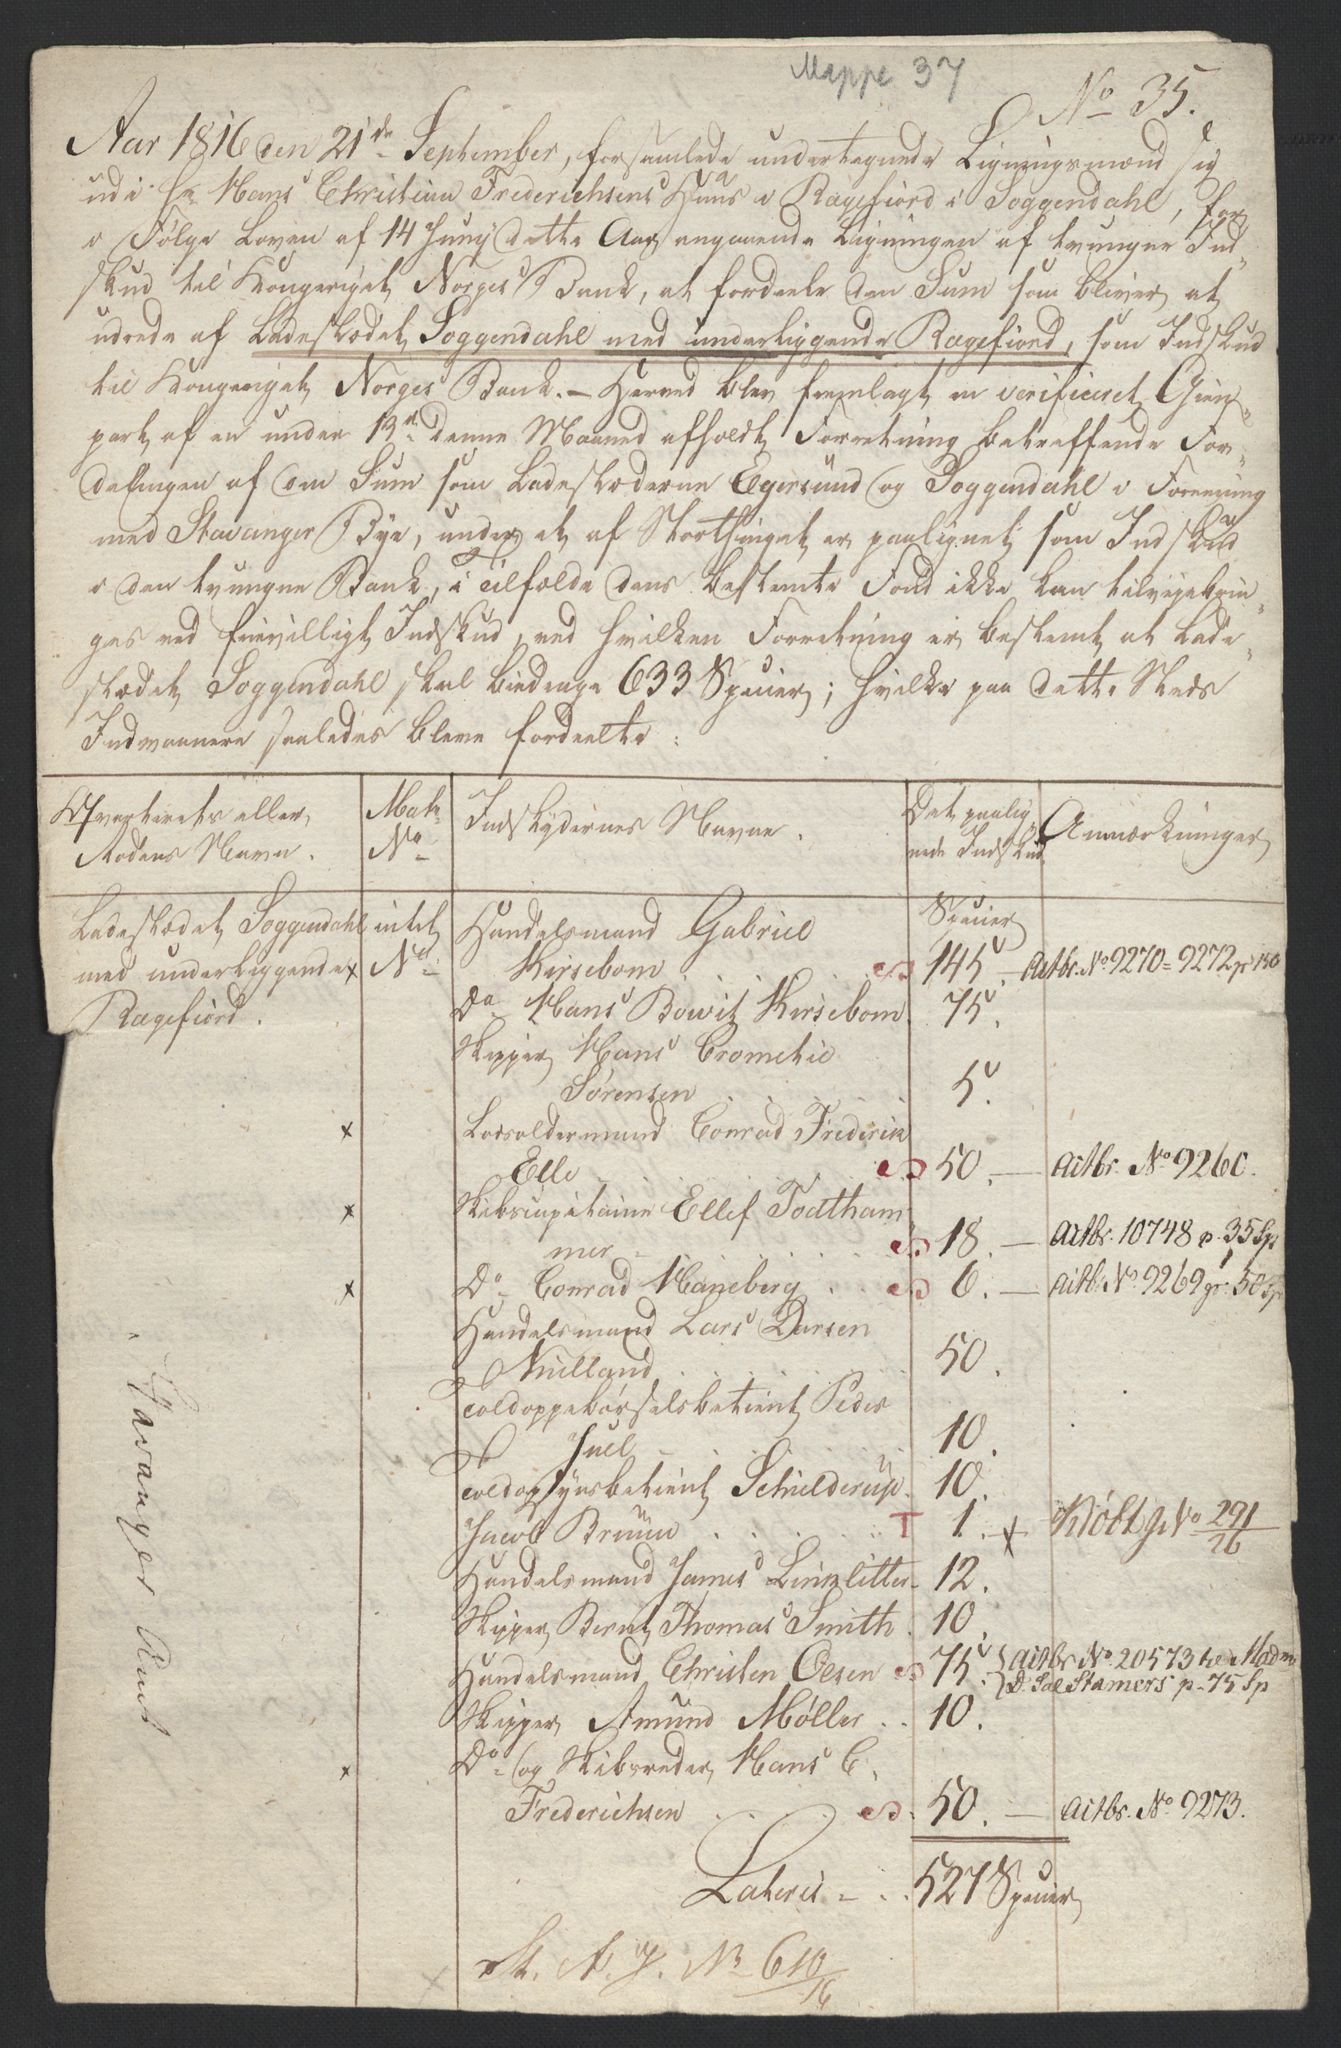 Mappe 37
No 35.
Aar 1816 den 21de September, forsamlede undertegnede Ligningsmænd sig
udi Hr Hans Christian Frederichsens Huus i Rægefiord i Soggendahl, for
i Følge Loven af 14 Junÿ dette Aar angaaende Ligningen af tvungne Ind-
skud til Kongeriget Norges Bank, at fordeele den Sum som bliver at
udrede af Ladestædet Soggendahl med underliggende Rægefiord, som Indskud
til Kongeriget Norges Bank. – Herved blev fremlagt en verificeret Gien-
part af en under 19de denne Maaned afholdt Forretning betreffende For-
delingen af den Sum som Ladestæderne Egersund og Soggendahl i Forening
med Stavanger Bye, under et af Storthinget er paalignet som Indskud
i den tvungne Bank, i Tilfælde dens bestemte Fond ikke kan tilveiebrin-
ges ved frievilligt Indskud, ved hvilken Forretning er bestemt at Lade-
stædet Soggendahl skal bidrage 633 Specier; hvilke paa dette Steds
Indvaanere saaledes bleve fordeelte:
Qvarterets eller Rodens Navn. Matr No Indskydernes Navne. Det paalignede Indskud Anmærkninger
Ladestædet Soggendahl intet Handelsmand Gabriel Specier
med underliggende x No Kirsebom S 145. – Actbr. No 9270 = 9272 p 150
Rægefiord. Do Hans Bowitz Kirsebom 75.
Skipper Hans Crometie
Sørensen 5.
x Lodsoldermand Conrad Frederik
Elle S 50. – Actbr. No 9260.
x Skibscapitaine Ellef Todtham
mer S 18. – Actbr. 10748 p. 35 Sp
x Do Conrad Haneberg S 6. – Actbr. No 9269 p. 50 Sp
Handelsmand Lars Larsen
50.
Toldoppebørselsbetient Peder
Juel 10.
Toldopsynsbetient Schielderup 10.
Jacob Bruun T 1. x Kiøbt p No 291/26
Handelsmand James Linklitter 12.
Skipper Bernt Thomas Smith 10
Handelsmand Christen Olsen S 75. { Actbr No 20573 to Madm
D. Sal Stamers p. 75 Sp
Skipper Amund Møller 10.
x Do og Skibsreder Hans C.
Frederichsen S 50. – Actbr. No 9273.
Lateris 527 Specier
St. A. J. No 610/16
Stavanger Amt